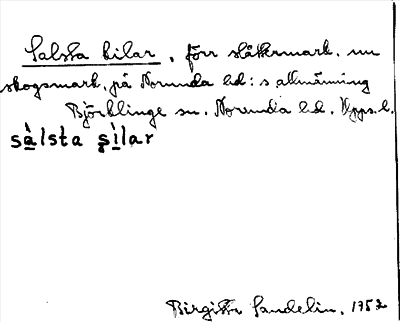 Salsta kilar, förr slåttermark, nu
skogsmark, på Norunda hd:s allmänning
Björklinge sn. Norunda hd. Upps. l.
sàlsta şìlar
Birgitta Sandelin, 1952